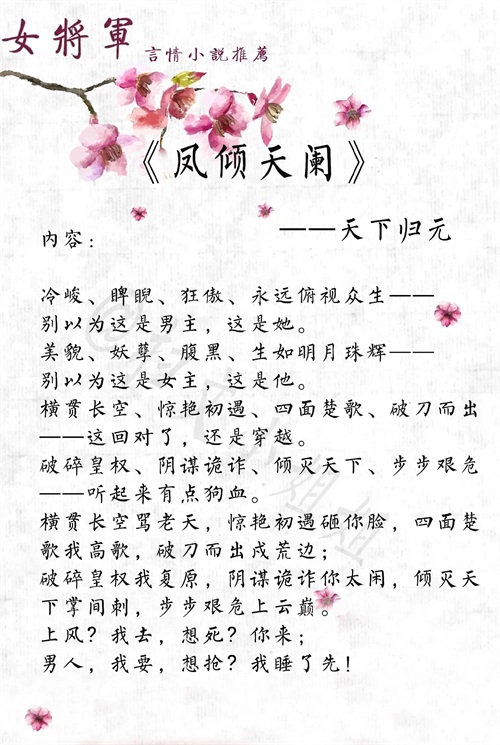 女將軍
言情小說推薦
《凤倾天阑》
——天下归元
内容：
冷峻、睥睨、狂傲、永远俯视众生——
别以为这是男主，这是她。
美貌、妖孽、腹黑、生如明月珠辉——
别以为这是女主，这是他。
横贯长空、惊艳初遇、四面楚歌、破刀而出
——这回对了，还是穿越。
破碎皇权、阴谋诡诈、倾灭天下、步步艰危
——听起来有点狗血。
横贯长空骂老天，惊艳初遇砸你脸，四面楚
歌我高歌，破刀而出戍荒边；
破碎皇权我复原，阴谋诡诈你太闲，倾灭天
下掌间刺，步步艰危上云巅。
上风？我去，想死？你来；
男人，我要，想抢？我睡了先！